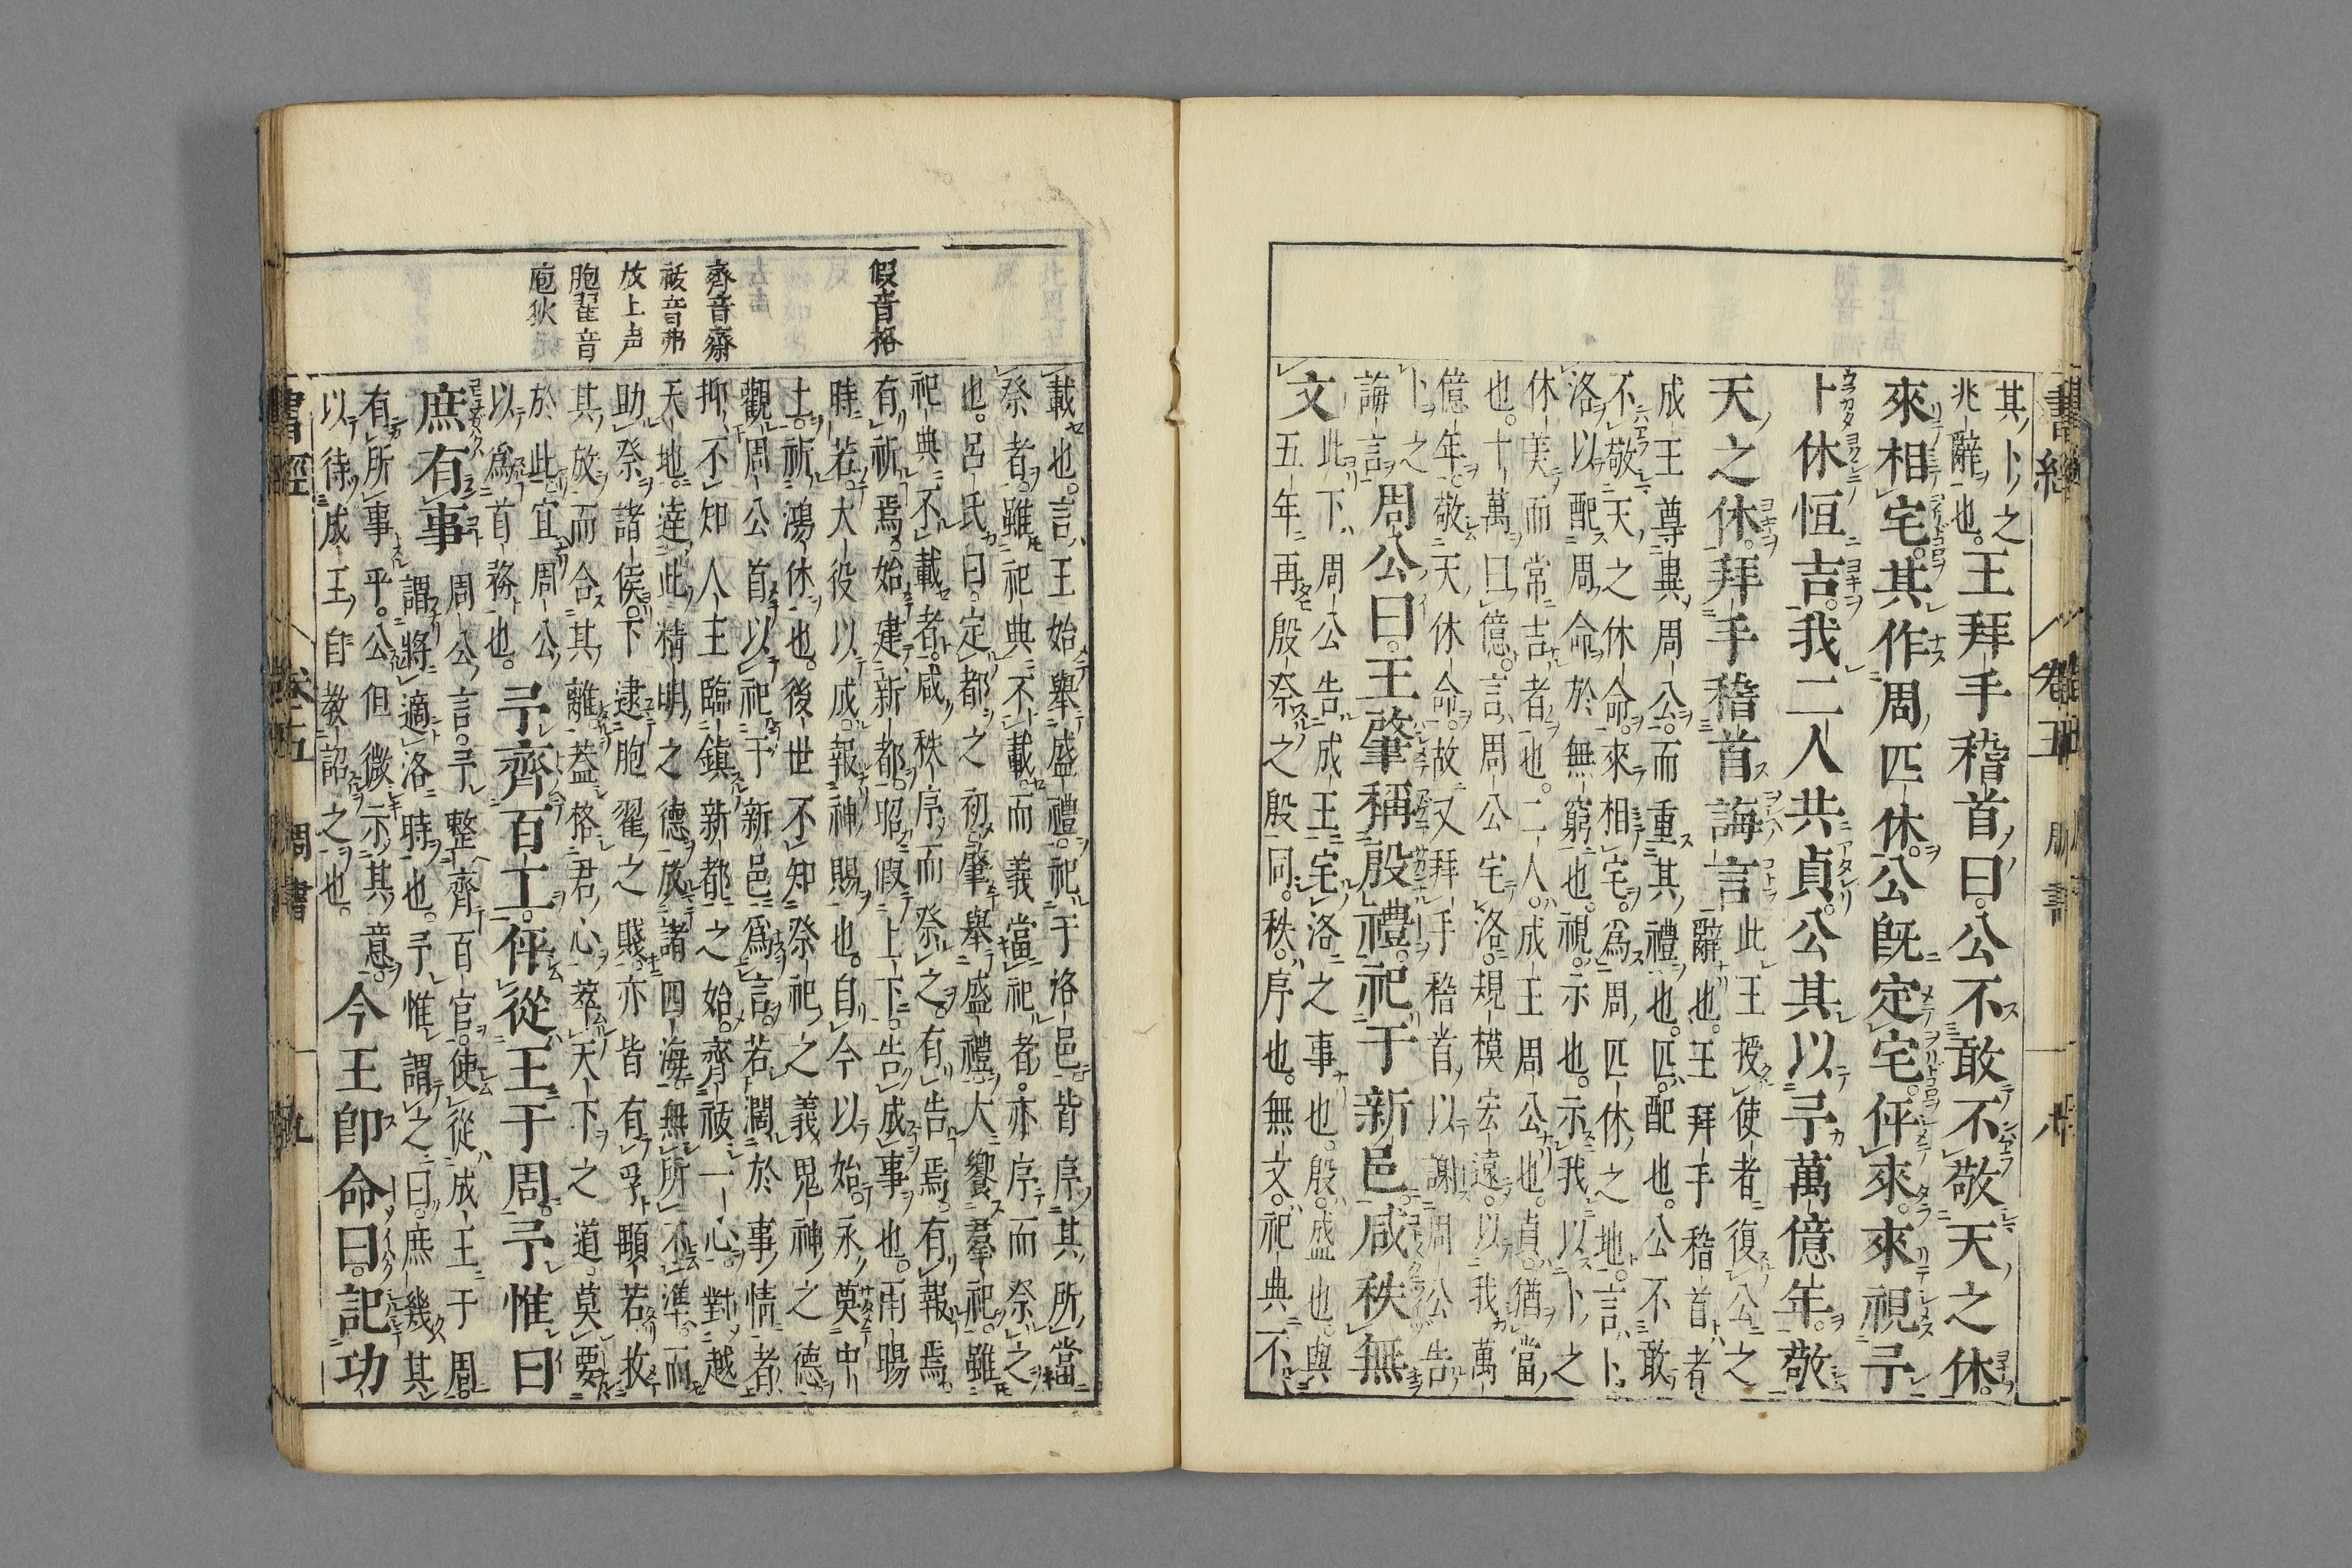 其卜之
兆辭也。王拜手稽首曰。公不敢不敬天之休。
來相宅。其作周匹休。公既定宅。伻來。來視予
卜休恒吉。我二人共貞。公其以予萬億年。敬
天之休。拜手稽首誨言
此王授使者復公之
辭也。王拜手稽首者
成王尊異周公。而重其禮也。匹。配也。公不敢
不敬天之休命。來相宅。爲周匹休之地。言卜
洛以配周命於無窮也。視。示也。示我以卜之
休美而常吉者也。二人。成王周公也。貞。猶當
也。十萬曰億。言周公宅洛。規模宏遠。以我萬
億年。敬天休命。故又拜手稽首。以謝周公告
卜之
誨言周公曰。王肇稱殷禮。祀于新邑。咸秩無
文
此下。周公告成王宅洛之事也。殷。盛也。與
五年再殷祭之殷同。秩。序也。無文。祀典不
載也。言王始舉盛禮。祀于洛邑。皆序其所當
祭者。雖祀典不載。而義當祀者。亦序而祭之
也。呂氏曰。定都之初。肇舉盛禮。大饗羣祀。雖
祀典不載者。咸秩序而祭之。有告焉。有報焉。
有祈焉。始建新都。昭假上下。告成事也。雨暘
時若。大役以成。報神賜也。自今以始。永奠中
土。祈鴻休也。後世不知祭祀之義。鬼神之德。
觀周公首以祀于新邑爲言。若濶於事情者。
抑不知人主臨鎮新都之始。齊祓一心。對越
天地。達此精明之德。放諸四海。無所不準。而
助祭諸侯。下逮胞翟之賤。亦皆有孚顒若。收
其放而合其離。葢格君心。萃天下之道。莫要
於此。宜周公
以爲首務也。予齊百工。伻從王于周。予惟曰
庶有事
周公言。予整齊百官。使從成王于周。
謂將適洛時也。予惟謂之曰。庶幾其
有所事乎。公但微示其意。
以待成王自教詔之也。
今王卽命曰。記功
假音格
齊音齋
祓音弗
放上声
胞翟音
庖狄
書經
卷五
周書
八
書經
卷五
周書
九